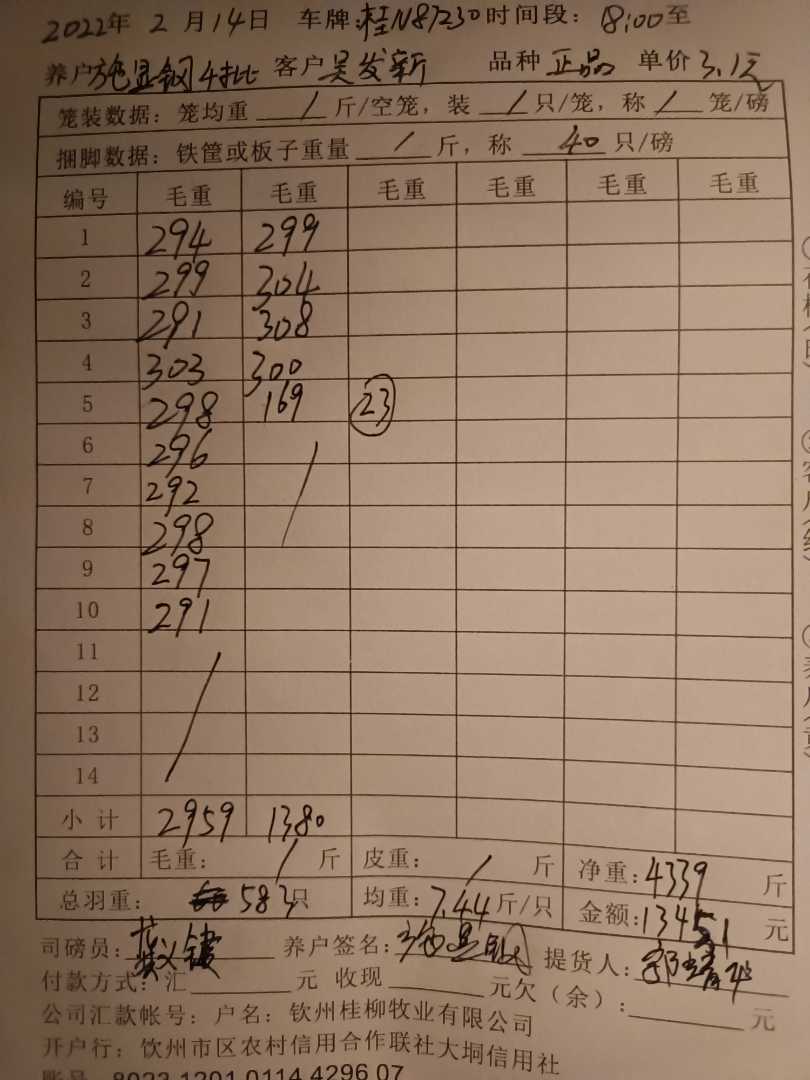 2022年 2 月 14日 车牌:桂N87230时间段: 18:00至
养户施显钢4批 客户吴发新 品种 正品 单价 3.1元
笼装数据: 笼均重 / 斤/空笼, 装 / 只/笼, 称 / 笼/磅
捆脚数据: 铁筐或板子重量 / 斤, 称 40 只/磅
编号 毛重 毛重 毛重 毛重 毛重 毛重
1 294 299
2 299 304
3 291 308
4 303 300
5 298 169 23
6 296 /
7 292
8 298
9 297
10 291
11 /
12
13
14
小 计 2959 1380
合 计 毛重: / 斤 皮重: / 斤 净重:4339 斤
总羽重: 583只 均重:7.44斤/只 金额:13451 元
司磅员: 养户签名:施显钢 提货人:
付款方式: 汇 元 收现 元欠(余): 元
公司汇款帐号: 户名: 钦州桂柳牧业有限公司
开户行: 饮州市区农村信用合作联社大垌信用社
账号 8023 1201 0114 4296 07